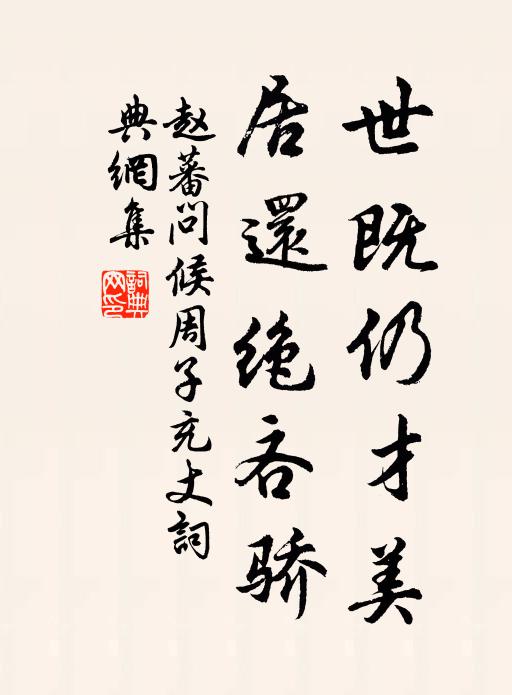 世既仍才美
居還绝吝骄
赵蕃问候周子充丈詞
典網集
詞典網印